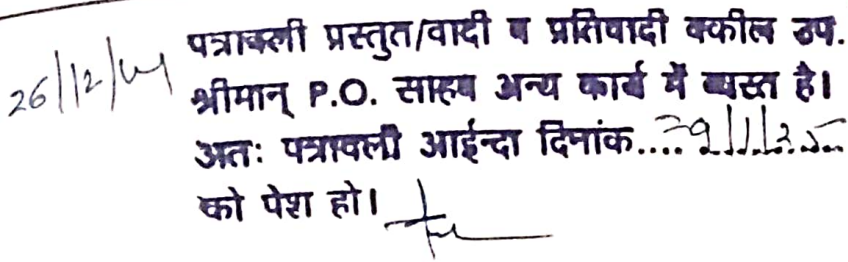 26/12/24 पत्रावली प्रस्तुत/वादी व प्रतिवादी वकील उप.
श्रीमान् P.O. साहब अन्य कार्य में व्यस्त है।
अतः पत्रावली आईन्दा दिनांक....
को पेश हो।